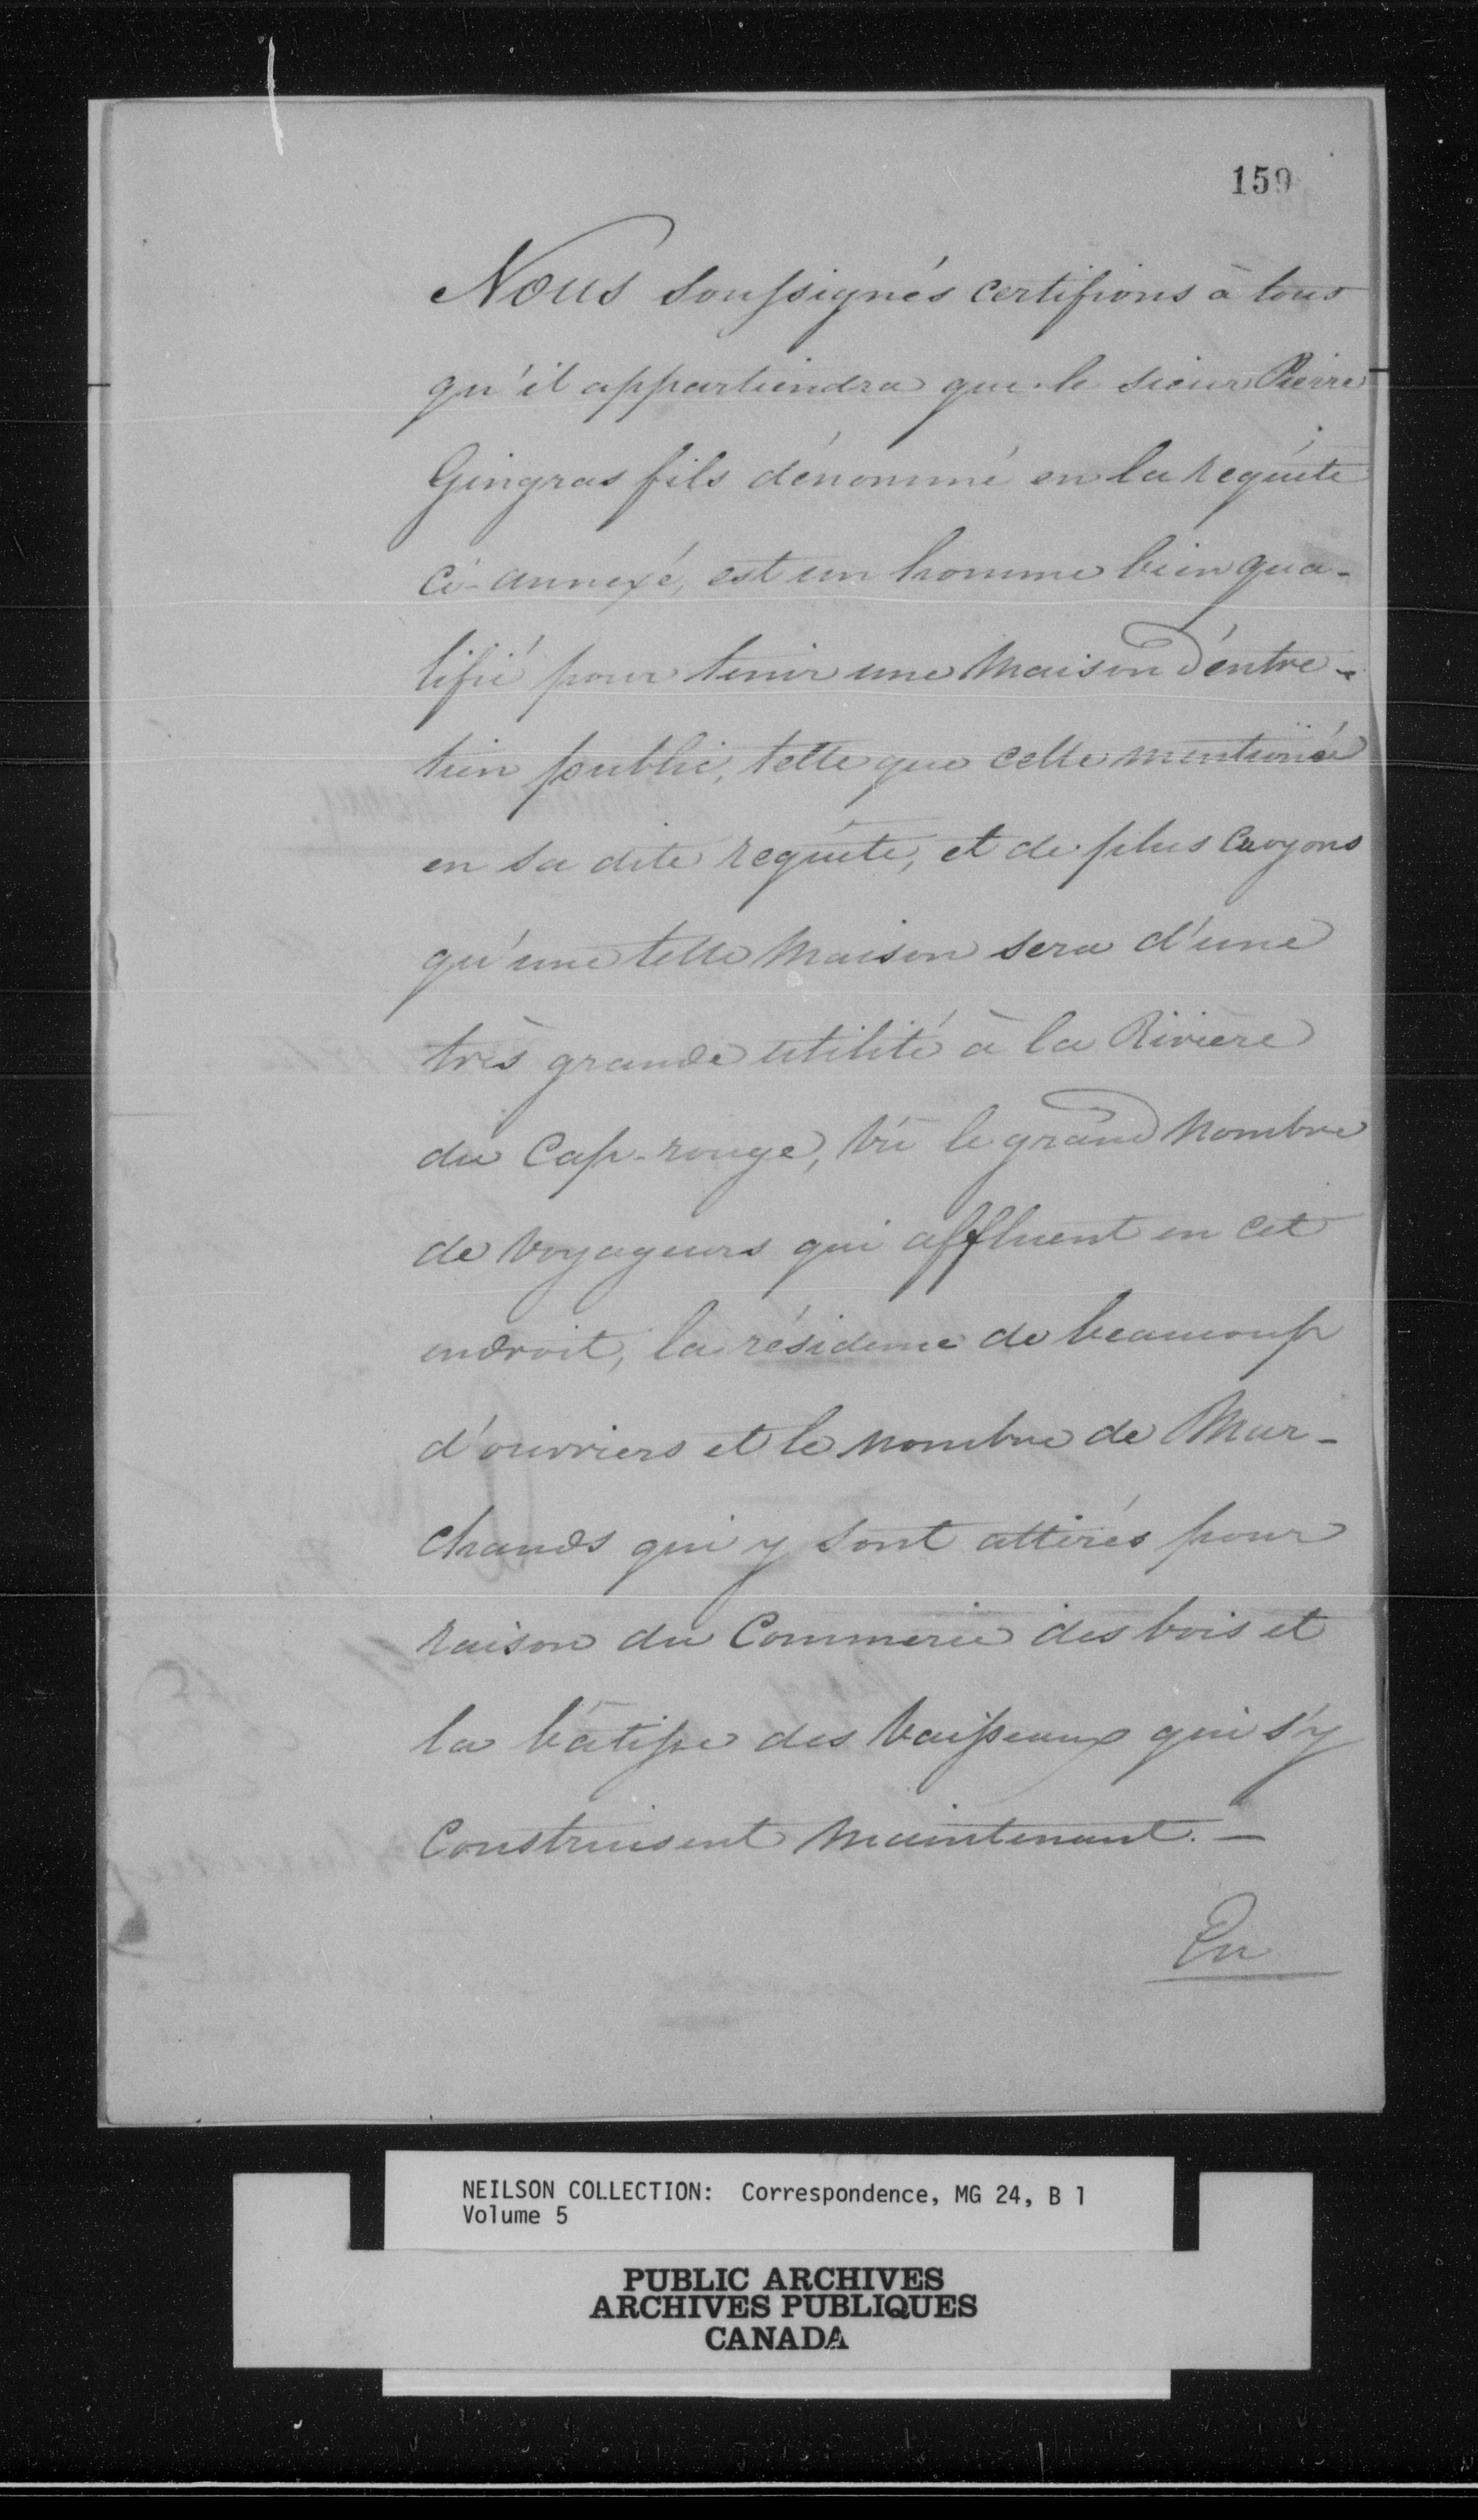 159
Nous soussignés certifions à tous
qu'il appartiendra que le sieur Pierre
Gingras fils dénommé en la requéte
ci-annexé, est un homme bien qua-
lifié pour tenir une Maison d'entre-
tien public, telle que celle mentionée
en sa dite requéte, et de plus Croyons
qu'une telle Maison sera d'une
très grande utilité à la Riviere
du Cap-rouge, vû le grand Nombre
de Voyageurs qui affluent en cet
endroit, la résidence de beaucoup
d'ouvriers et le nombre de Mar-
chands qui y sont attirés pour
raison du Commerce des bois et
la bâtisse des Vaisseaux qui s'y
Construisent Maintenant. —
En
NEILSON COLLECTION: Correspondence, MG 24, B 1
Volume 5
PUBLIC ARCHIVES
ARCHIVES PUBLIQUES
CANADA